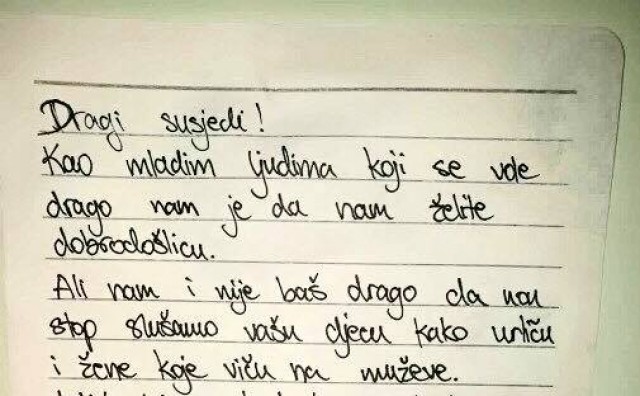 Dragi susjedi!
Kao mladim ljudima koji se vole
drago nam je da nam želite
dobrodošlicu.
Ali nam i nije baš drago da non
stop slušamo vašu djecu kako urliču
i žene koje viču na muževe.